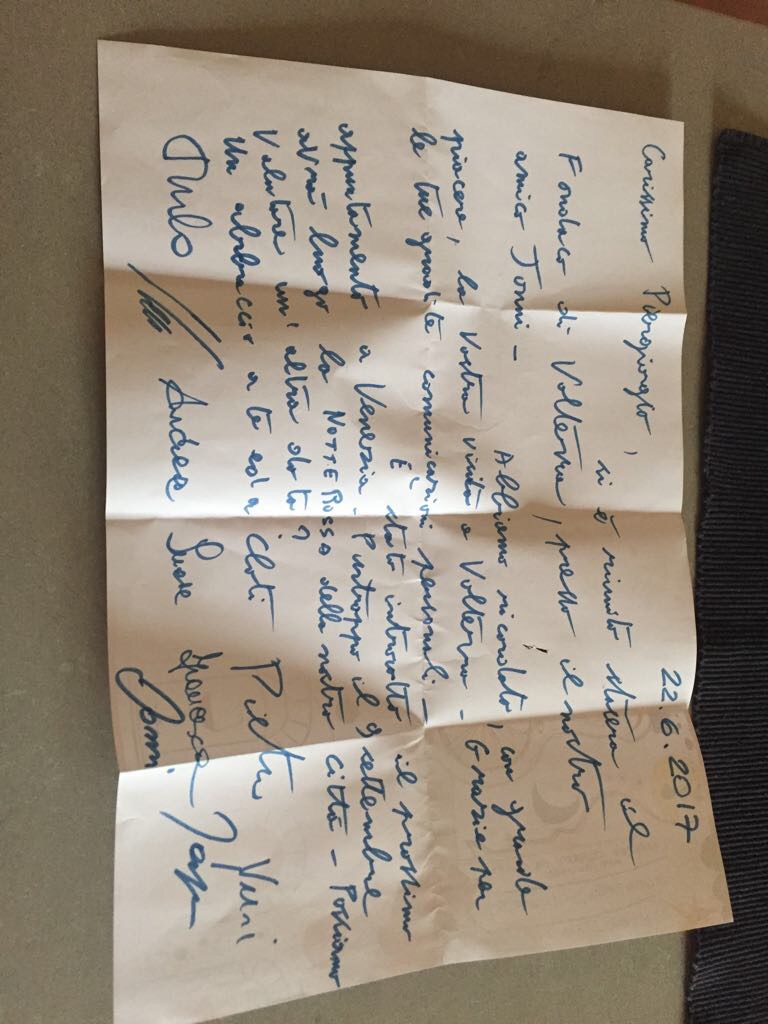 22.6.2017
Carissimo Piergiorgio,
si è riunito stasera il
Fondaco di Volterra, presso il nostro
amico Tonni -
Abbiamo ricordato, con grande
piacere, la Vostra visita a Volterra - Grazie per
le tue gradite comunicazioni personali -
È stato introdotto il prossimo
appuntamento a Venezia - Purtroppo il 9 settembre
avrà luogo la NOTTE Rossa della nostra città - Possiamo
valutare un'altra data?
Un abbraccio a te ed a Cloti
Pietro Yuri
Andrea